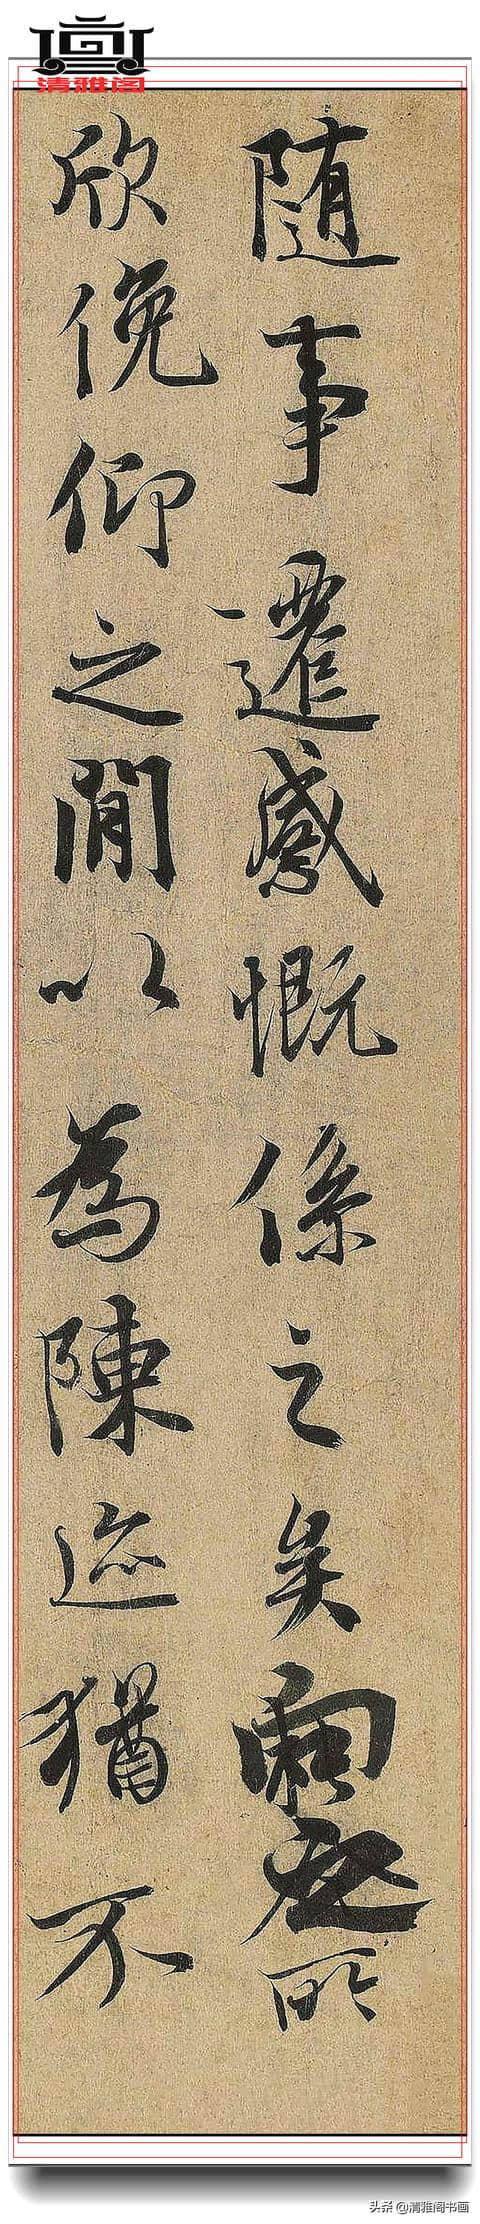 清雅阁
随事遷感慨係之矣向之所
欣俛仰之間以為陳迹猶不
头条@清雅阁书画